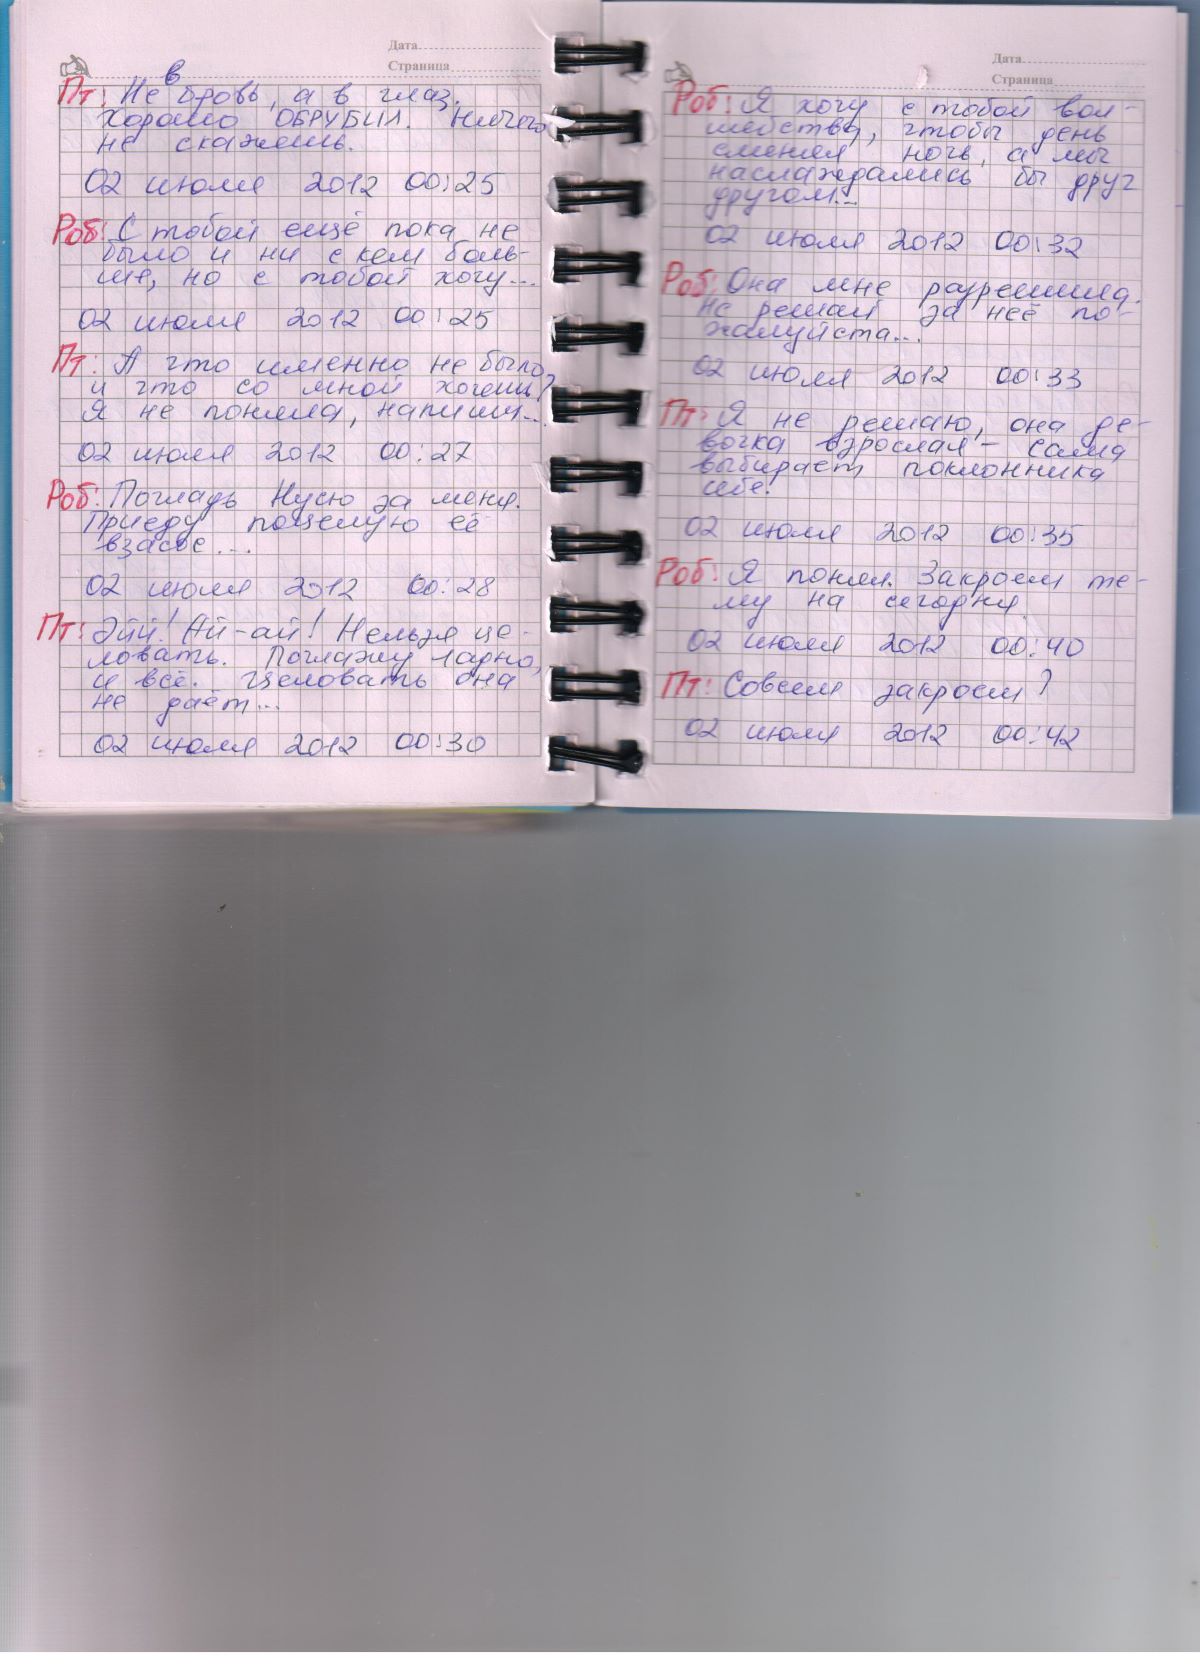 Дата
Страница
Пт: Не в бровь, а в глаз.
Хорошо ОБРУБИЛ. Ничего
не скажешь.
02 июля 2012 00:25
Роб: С тобой ещё пока не
было и ни с кем боль-
ше, но с тобой хочу...
02 июля 2012 00:25
Пт: А что именно не было
и что со мной хочешь?
Я не поняла, напиши...
02 июля 2012 00:27
Роб: Погладь Нусю за меня.
Приеду поцелую её
взасос...
02 июля 2012 00:28
Пт: Эйй! Ай-ай! Нельзя це-
ловать. Поглажу ладно,
и всё. Целовать она
не даёт...
02 июля 2012 00:30
Дата
Страница
Роб: Я хочу с тобой вол-
шебства, чтобы день
сменял ночь, а мы
наслаждались бы друг
другом...
02 июля 2012 00:32
Роб: Она мне разрешила.
Не решай за неё по-
жалуйста...
02 июля 2012 00:33
Пт: Я не решаю, она де-
вочка взрослая - сама
выбирает поклонника
себе.
02 июля 2012 00:35
Роб: Я понял. Закроем те-
му на сегодня.
02 июля 2012 00:40
Пт: Совсем закроем?
02 июля 2012 00:42